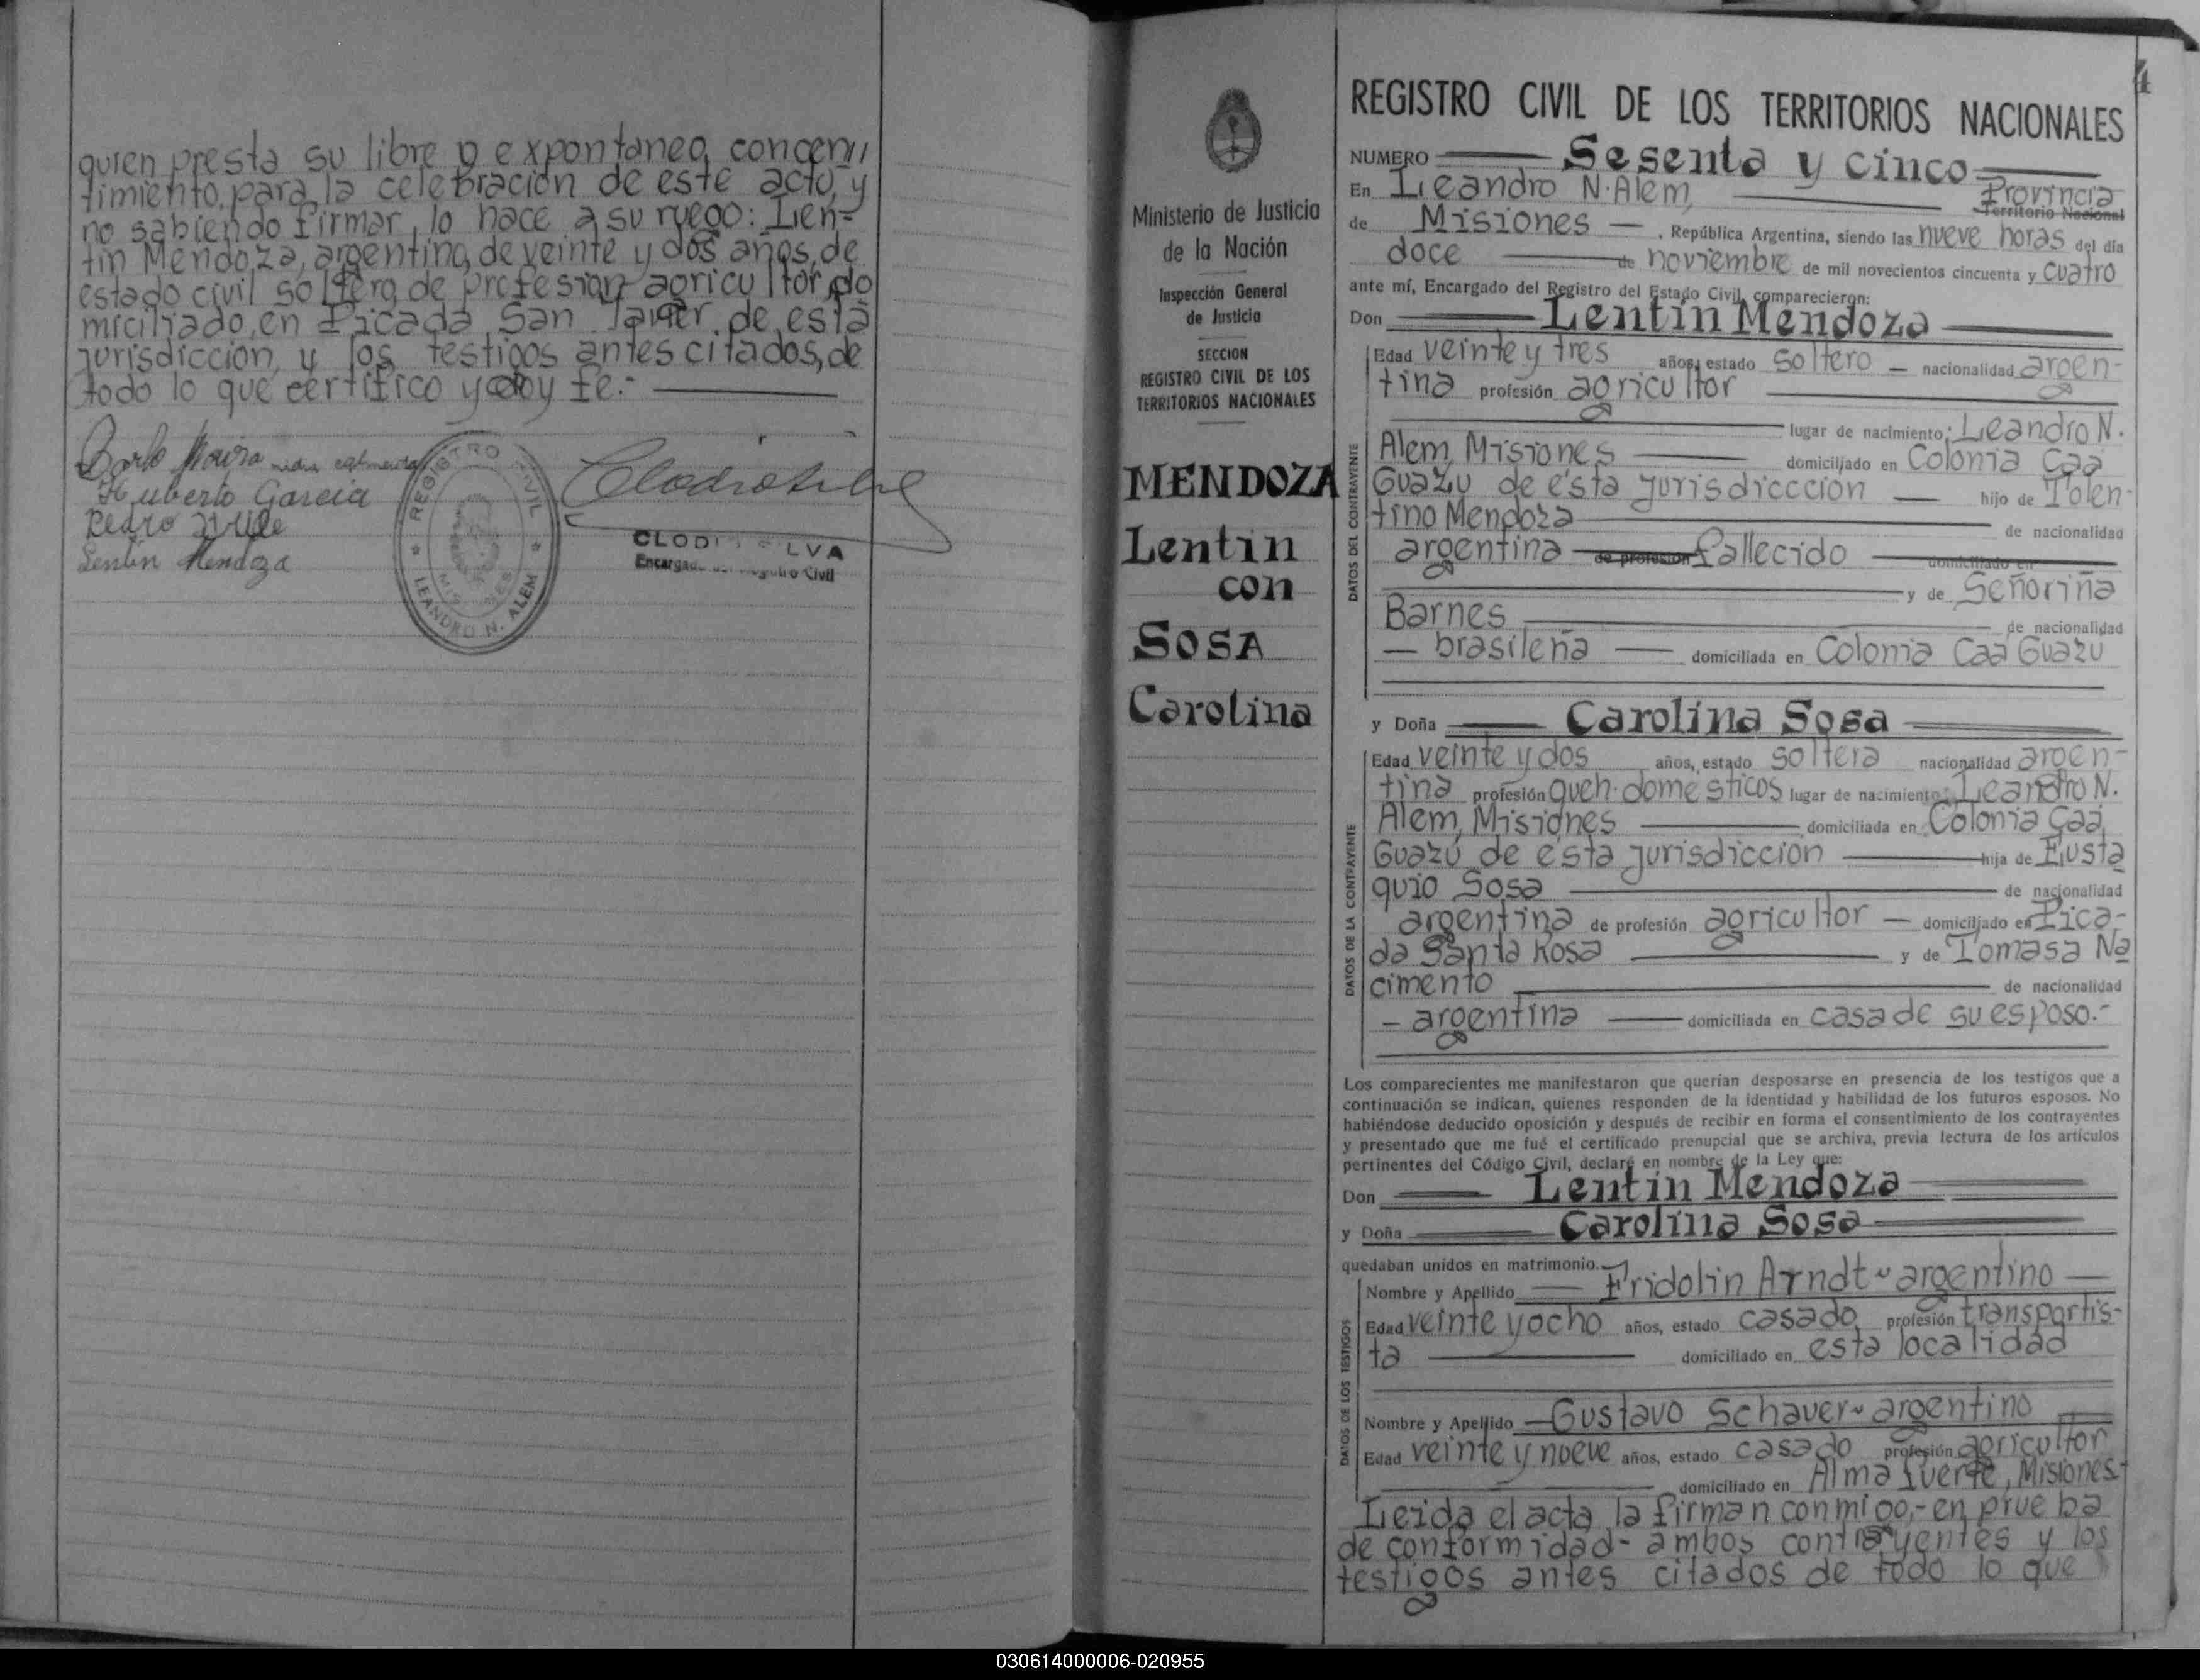 quien presta su libre y expontaneo concen//
timiento, para la celebración de este acto, y
no sabiendo firmar, lo hace a su ruego: Len=
tin Mendoza, argentino, de veinte y dos años, de
estado civil soltero, de profesion agricultor, do
miciliado, en Picada San Javier, de esta
jurisdiccion, y los testigos antes citados, de
todo lo que certifico y doy fe.-
Huberto Garcia
Pedro
Lentin Mendoza
REGISTRO CIVIL
MISIONES
LEANDRO N. ALEM
CLODI LVA
Encargado del Registro Civil
4
Ministerio de Justicia
de la Nación
Inspección General
de Justicia
SECCION
REGISTRO CIVIL DE LOS
TERRITORIOS NACIONALES
MENDOZA
Lentin
con
SOSA
Carolina
REGISTRO CIVIL DE LOS TERRITORIOS NACIONALES
NUMERO Sesenta y cinco
En Leandro N. Alem, Provincia
Territorio Nacional
de Misiones . República Argentina, siendo las nueve horas del día
doce de noviembre de mil novecientos cincuenta y cuatro
ante mí, Encargado del Registro del Estado Civil, comparecieron:
Don Lentin Mendoza
DATOS DEL CONTRAYENTE
Edad veinte y tres años, estado soltero nacionalidad argen-
tina profesión agricultor
lugar de nacimiento: Leandro N.
Alem, Misiones domiciliado en Colonia Caá
Guazu de ésta jurisdiccción hijo de Tolen-
tino Mendoza de nacionalidad
argentina de profesión fallecido domiciliado en
y de Señoriña
Barnes de nacionalidad
brasileña domiciliada en Colonia Caá Guazu
y Doña Carolina Sosa
DATOS DE LA CONTRAYENTE
Edad veinte y dos años, estado soltera nacionalidad argen-
tina profesión queh. domésticos lugar de nacimiento: Leandro N.
Alem, Misiones domiciliada en Colonia Caá
Guazú de ésta jurisdicción hija de Eusta
quio Sosa de nacionalidad
argentina de profesión agricultor domiciliado en Pica-
da Santa Rosa y de Tomasa Na
cimento de nacionalidad
- argentina domiciliada en casa de su esposo.-
Los comparecientes me manifestaron que querían desposarse en presencia de los testigos que a
continuación se indican, quienes responden de la identidad y habilidad de los futuros esposos. No
habiéndose deducido oposición y después de recibir en forma el consentimiento de los contrayentes
y presentado que me fué el certificado prenupcial que se archiva, previa lectura de los artículos
pertinentes del Código Civil, declaré en nombre de la Ley que:
Don Lentin Mendoza
y Doña Carolina Sosa
quedaban unidos en matrimonio.
DATOS DE LOS TESTIGOS
Nombre y Apellido Fridolin Arndt ~ argentino
Edad veinte y ocho años, estado casado profesión transportis-
ta domiciliado en esta localidad
Nombre y Apellido Gustavo Schaver ~ argentino
Edad veinte y nueve años, estado casado profesión agricultor
domiciliado en Alma fuerte, Misiones-
Leida el acta la firman conmigo,- en prueba
de conformidad- ambos contrayentes y los
testigos antes citados de todo lo que
030614000006-020955